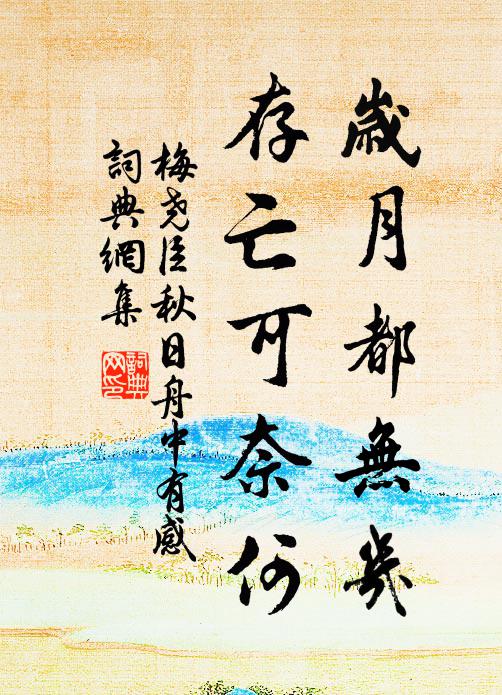 歲月都無幾
存亡可奈何
梅堯臣秋日舟中有感
詞典網集
詞典
网印